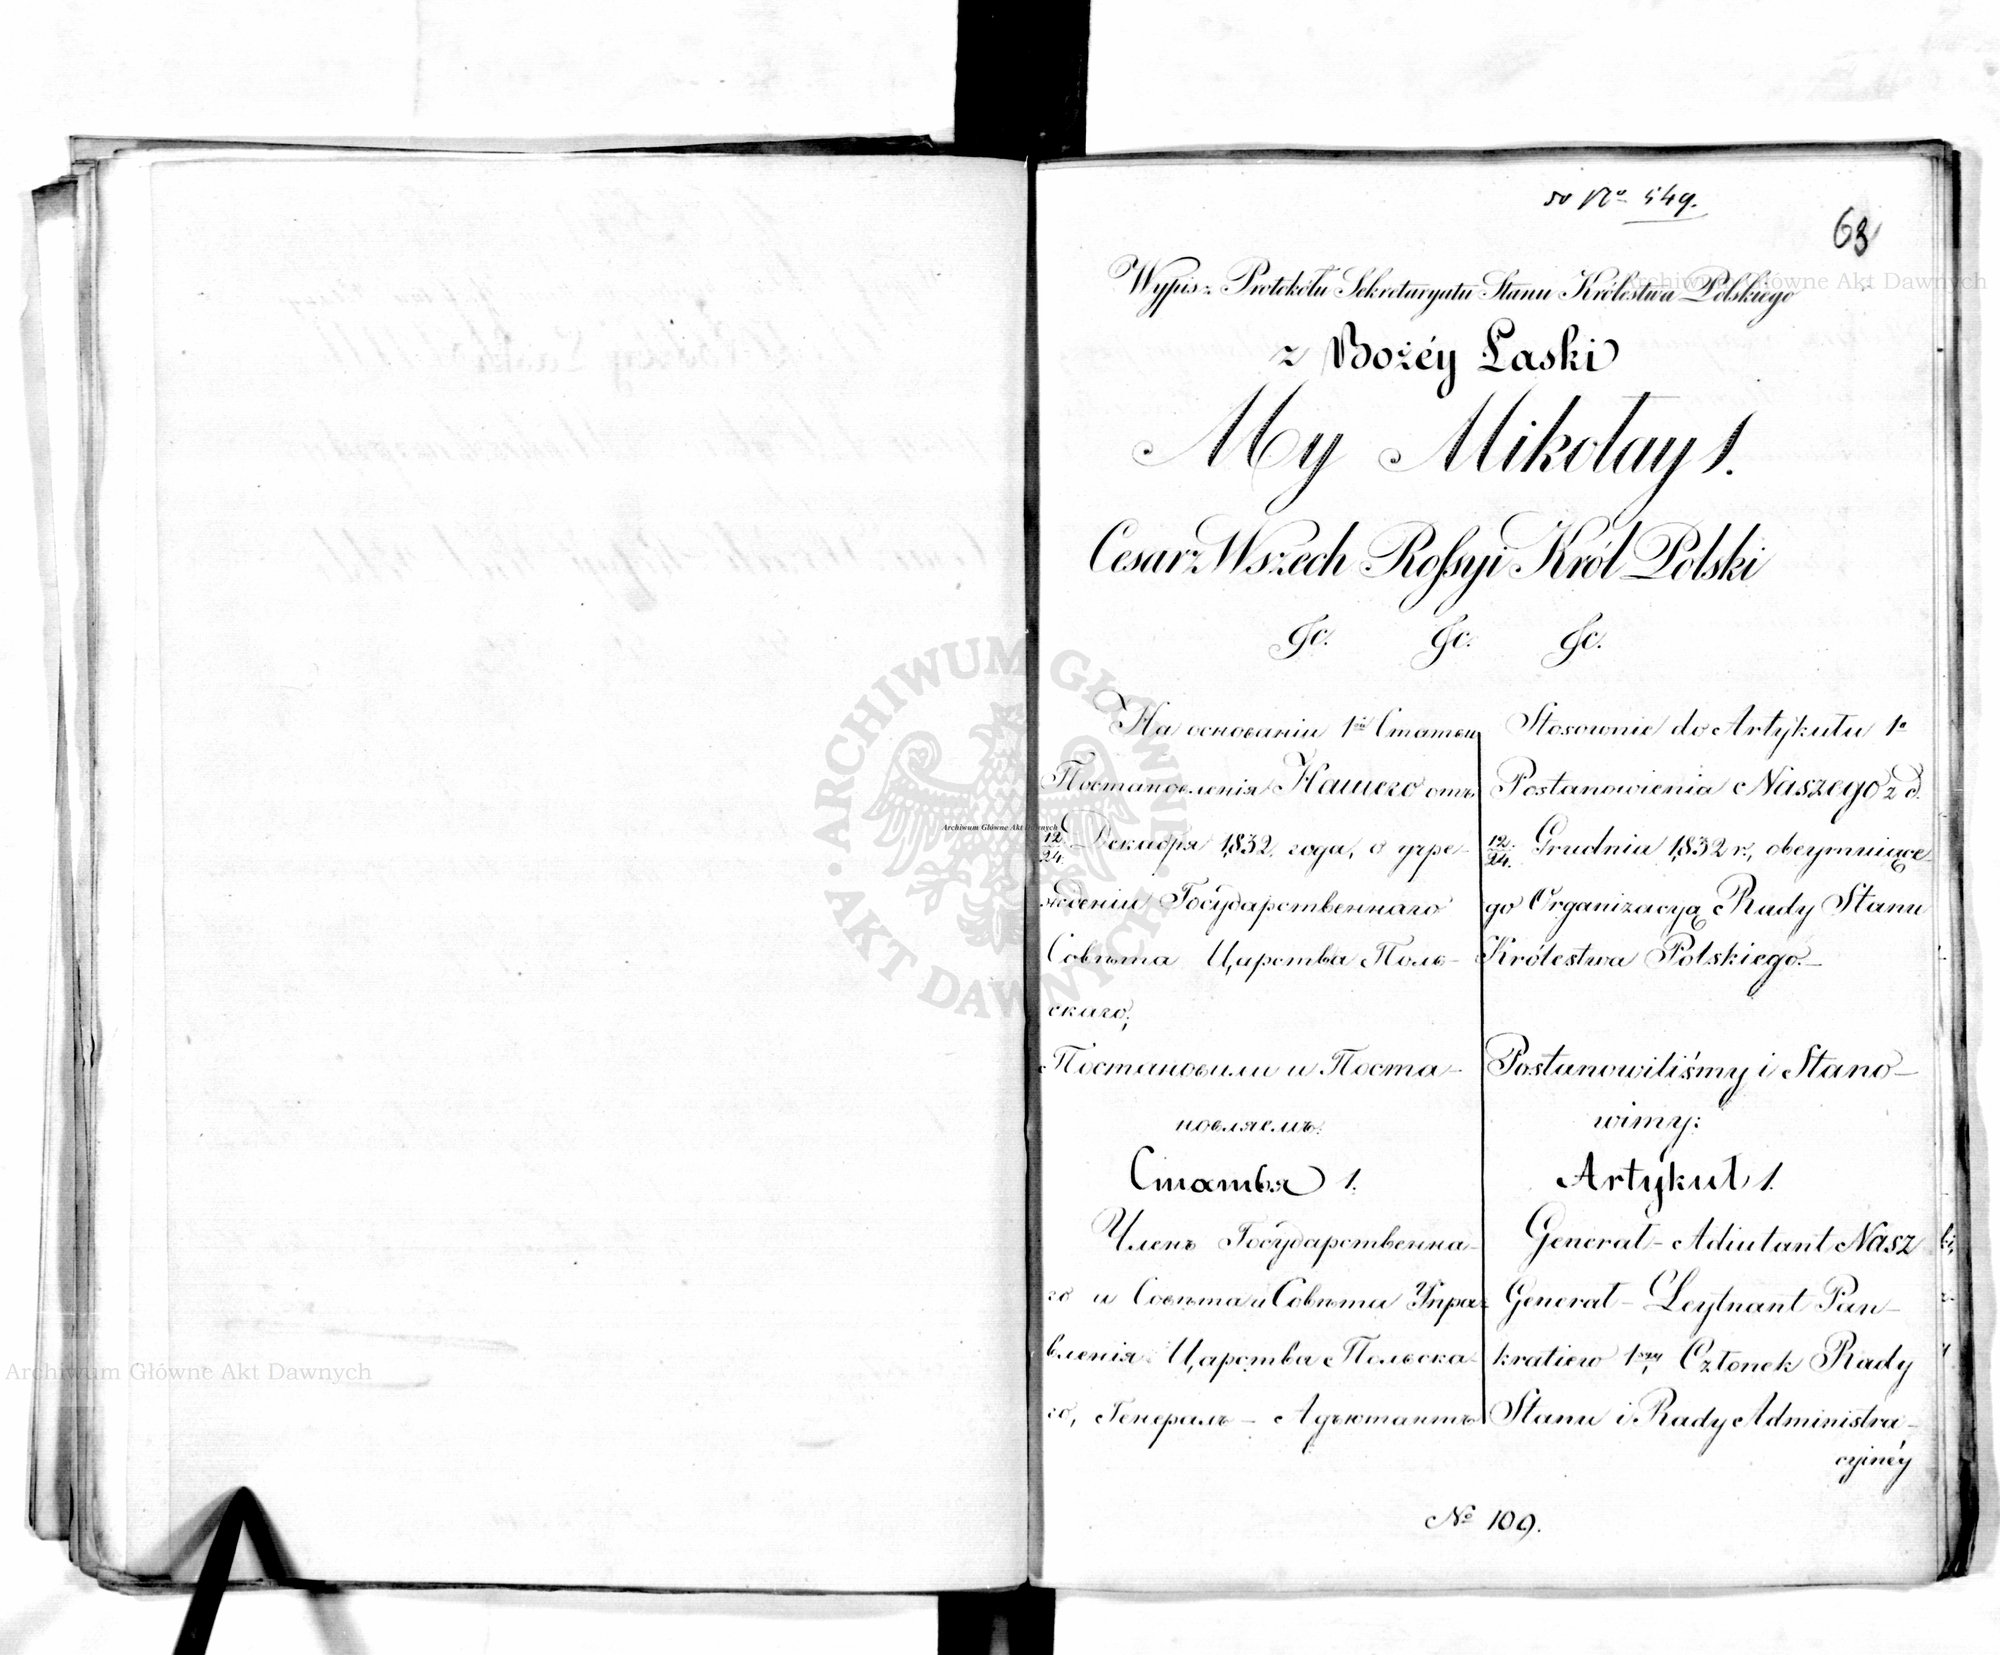 № 549.
63
Wypis z Protokółu Sekretaryatu Stanu Królestwa Polskiego
z Bożéy Łaski
My Mikołay 1.
Cesarz Wszech Rossyi Król Polski
&c. &c. &c.
На основаніи 1ой Статьи
Постановленія Нашего отъ
12/24 Декабря 1832 года, о учре-
жденіи Государственнаго
Совѣта Царства Поль-
скаго,
Постановили и Поста-
новляемъ:
Статья 1.
Членъ Государственна-
го и Совѣта и Совѣта Упра-
вленія Царства Польска-
го, Генералъ-Адъютантъ
Stosownie do Artykułu 1o
Postanowienia Naszego z d.
12/24 Grudnia 1832 r., obeymuiące-
go Organizacyą Rady Stanu
Królestwa Polskiego.
Postanowiliśmy i Stano-
wimy:
Artykuł 1.
Generał-Adiutant Nasz
Generał-Leytnant Pan-
kratiew 1szy Członek Rady
Stanu i Rady Administra-
cyinéy
№ 109.
ARCHIWUM GŁÓWNE AKT DAWNYCH
Archiwum Główne Akt Dawnych
Archiwum Główne Akt Dawnych
Archiwum Główne Akt Dawnych